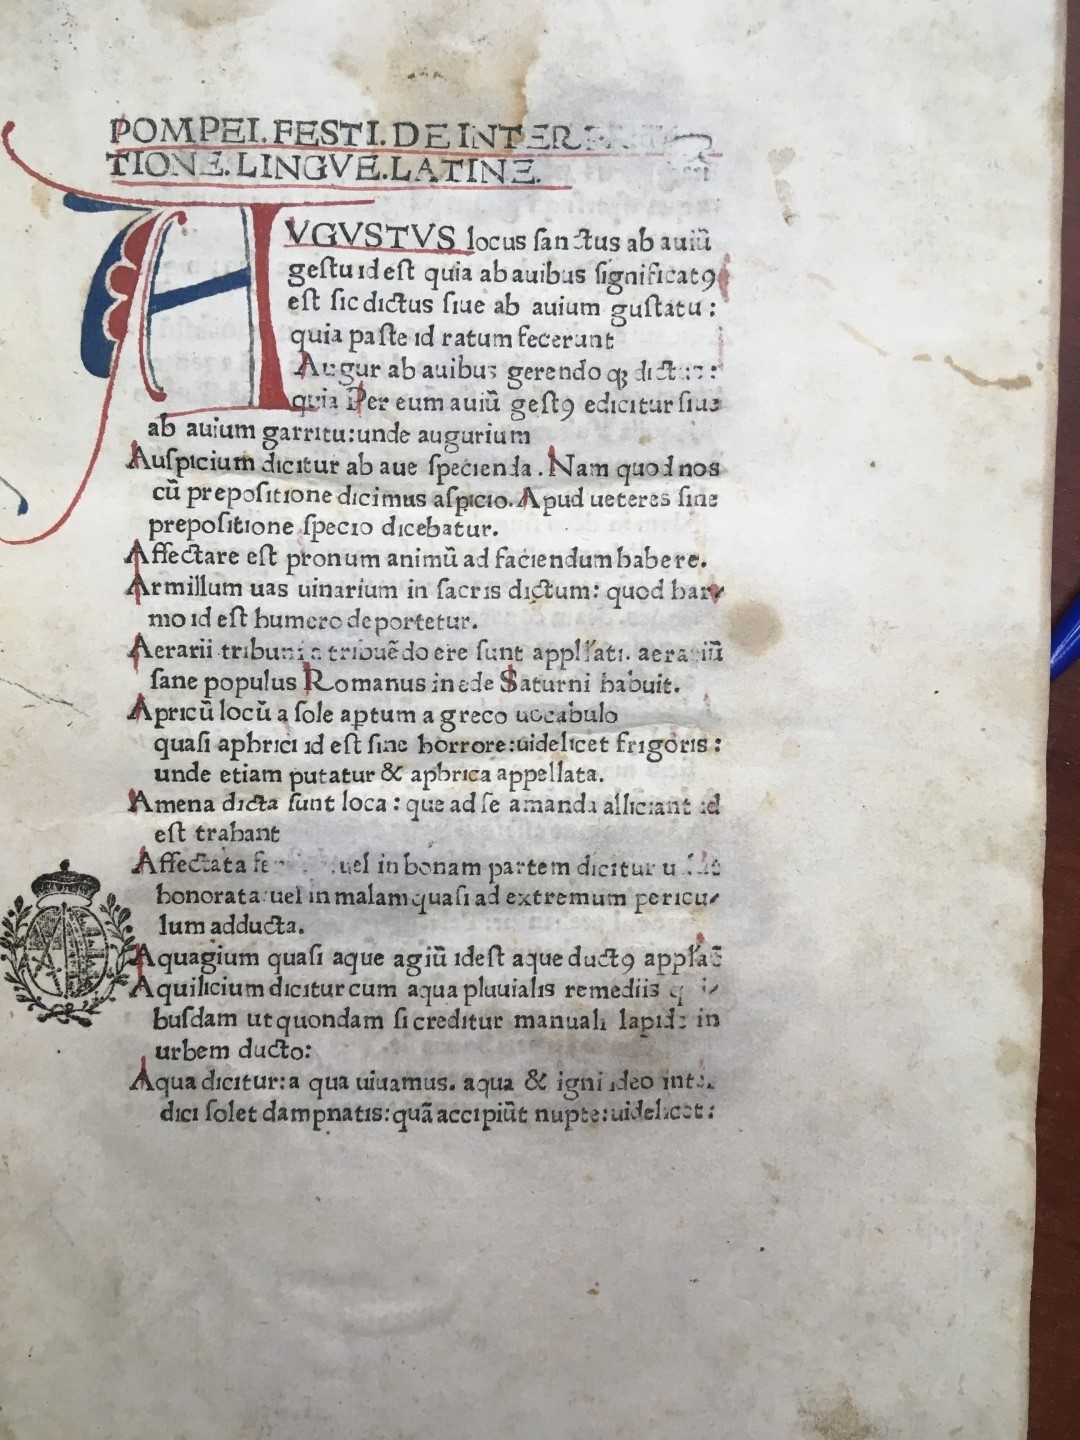 POMPEI. FESTI. DE INTERPRETA
TIONE. LINGVE. LATINE.
AVGVSTVS locus sanctus ab auiū
gestu id est quia ab auibus significatꝰ
est sic dictus siue ab auium gustatu:
quia paste id ratum fecerunt
Augur ab auibus gerendo ꝙ dictus:
quia Per eum auiū gestꝰ edicitur siue
ab auium garritu: unde augurium
Auspicium dicitur ab aue specienda. Nam quod nos
cū prepositione dicimus aspicio. Apud ueteres sine
prepositione specio dicebatur.
Affectare est pronum animū ad faciendum habere.
Armillum uas uinarium in sacris dictum: quod har
mo id est humero deportetur.
Aerarii tribuni a tribuēdo ere sunt appl'lati. aerariū
sane populus Romanus in ede Saturni habuit.
Apricū locū a sole aptum a greco uocabulo
quasi aphrici id est sine horrore: uidelicet frigoris:
unde etiam putatur & aphrica appellata.
Amena dicta sunt loca: que ad se amanda alliciant id
est trahant
Affectata uel in bonam partem dicitur
honorata: uel in malam quasi ad extremum pericu
lum adducta.
Aquagium quasi aque agiū id est aque ductꝰ appl'at̄
Aquilicium dicitur cum aqua pluuialis remediis qui
busdam ut quondam si creditur manuali lapide in
urbem ducto:
Aqua dicitur: a qua uiuamus. aqua & igni ideo inter
dici solet dampnatis: quā accipiūt nupte: uidelicet: